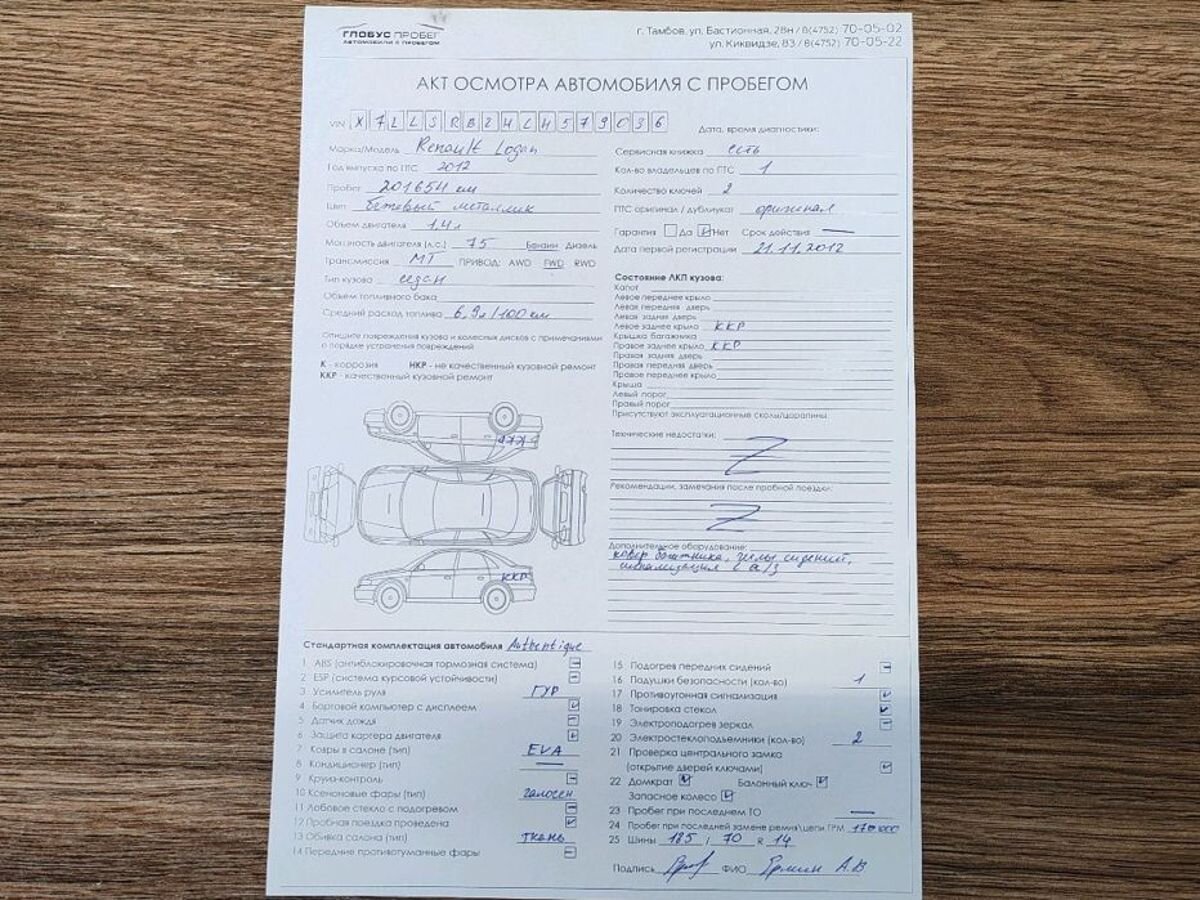 ГЛОБУС ПРОБЕГ
АВТОМОБИЛИ С ПРОБЕГОМ
г. Тамбов, ул. Бастионная, 28н / 8(4752) 70-05-02
ул. Киквидзе, 83 / 8(4752) 70-05-22
АКТ ОСМОТРА АВТОМОБИЛЯ С ПРОБЕГОМ
VIN X7LLSRB24CH579036
Дата, время диагностики:
Марка/Модель Renault Logan
Год выпуска по ПТС 2012
Пробег 201654 км
Цвет бежевый металлик
Объем двигателя 1,4л
Мощность двигателя (л.с.) 75 Бензин Дизель
Трансмиссия МТ ПРИВОД: AWD FWD RWD
Тип кузова седан
Объем топливного бака
Средний расход топлива 6,9л/100 км
Опишите повреждения кузова и колесных дисков с примечаниями
о порядке устранения повреждений
К - коррозия НКР - не качественный кузовной ремонт
ККР - качественный кузовной ремонт
ККР
ККР
Сервисная книжка есть
Кол-во владельцев по ПТС 1
Количество ключей 2
ПТС оригинал / дубликат оригинал
Гарантия Да Нет Срок действия —
Дата первой регистрации 21.11.2012
Состояние ЛКП кузова:
Капот
Левое переднее крыло
Левая передняя дверь
Левая задняя дверь
Левое заднее крыло ККР
Крышка багажника
Правое заднее крыло ККР
Правая задняя дверь
Правая передняя дверь
Правое переднее крыло
Крыша
Левый порог
Правый порог
Присутствуют эксплуатационные сколы/царапины
Технические недостатки:
Z
Рекомендации, замечания после пробной поездки:
Z
Дополнительное оборудование:
ковер багажника, чехлы сидений,
сигнализация с а/з
Стандартная комплектация автомобиля Authentique
1 ABS (антиблокировочная тормозная система) —
2 ESP (система курсовой устойчивости) —
3 Усилитель руля ГУР
4 Бортовой компьютер с дисплеем
5 Датчик дождя —
6 Защита картера двигателя
7 Ковры в салоне (тип) EVA
8 Кондиционер (тип) —
9 Круиз-контроль —
10 Ксеноновые фары (тип) галоген
11 Лобовое стекло с подогревом —
12 Пробная поездка проведена
13 Обивка салона (тип) ткань
14 Передние противотуманные фары —
15 Подогрев передних сидений —
16 Подушки безопасности (кол-во) 1
17 Противоугонная сигнализация
18 Тонировка стекол
19 Электроподогрев зеркал —
20 Электростеклоподъемники (кол-во) 2
21 Проверка центрального замка
(открытие дверей ключами)
22 Домкрат Балонный ключ
Запасное колесо
23 Пробег при последнем ТО —
24 Пробег при последней замене ремня\цепи ГРМ
25 Шины 185 / 70 R 14
Подпись ФИО А.В.